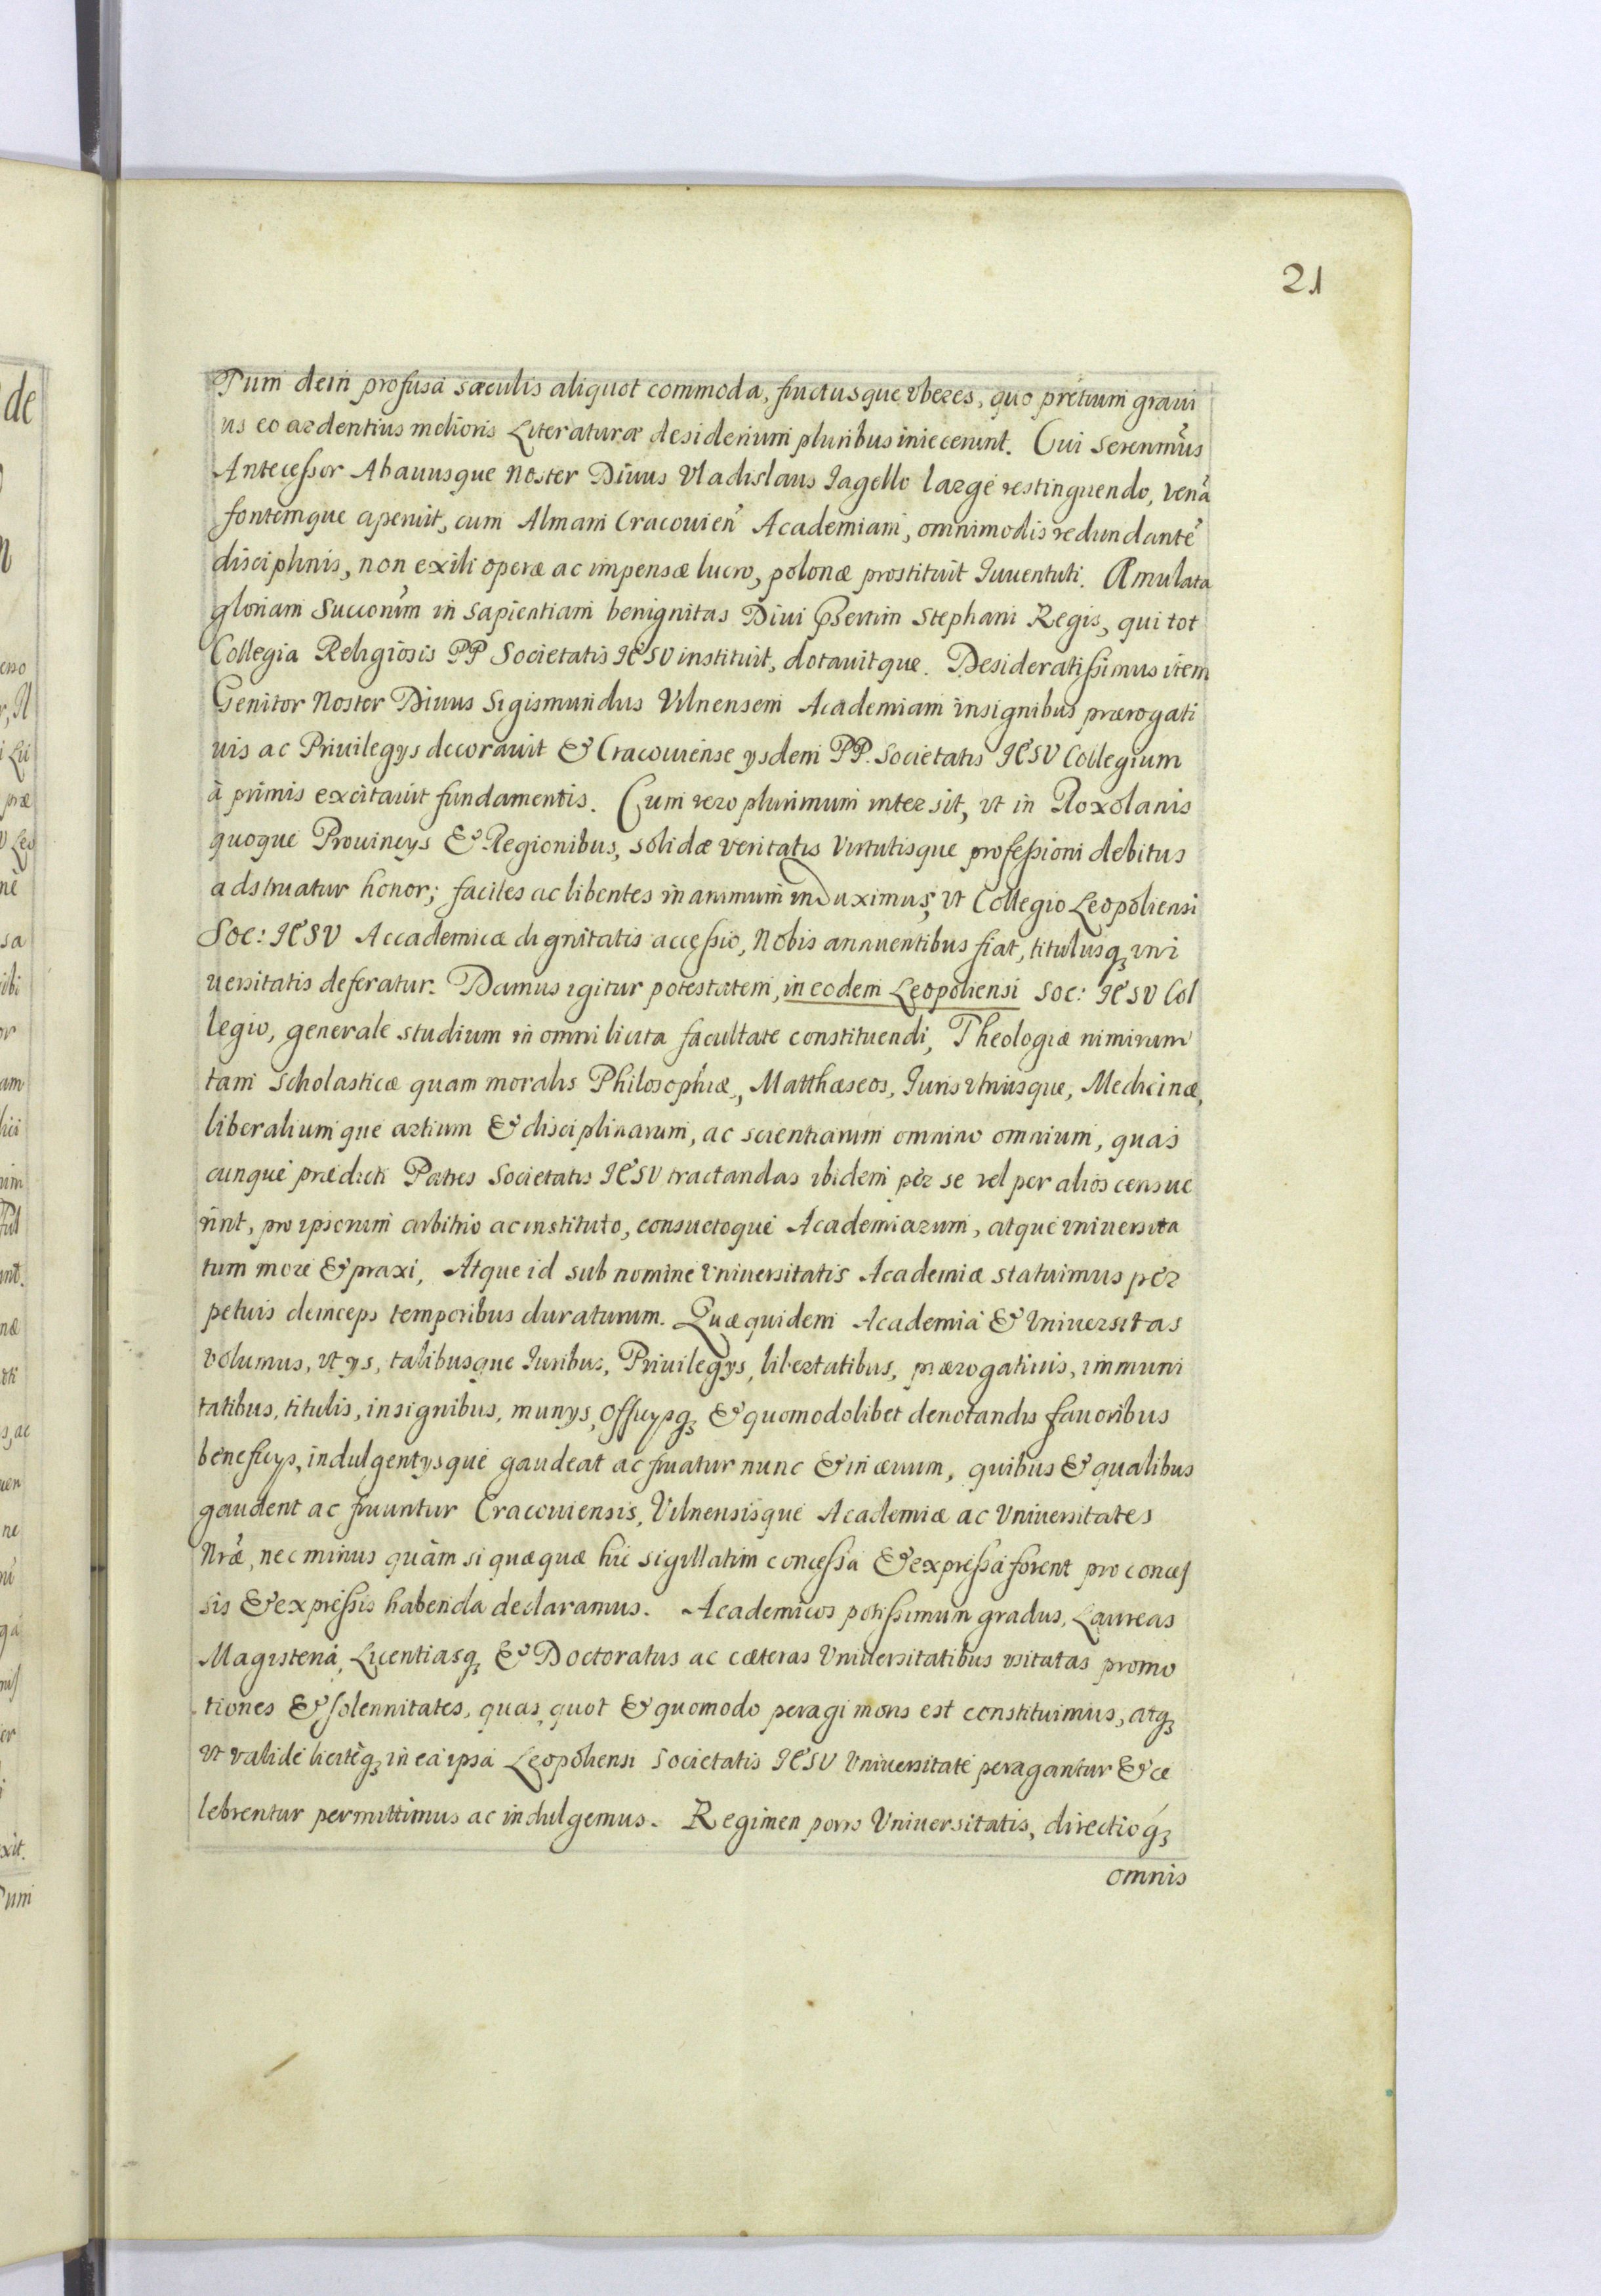 21
Tum dein profusa sæculis aliquot commoda, fructusque vberes, quo pretium graui
us eo ardentius melioris Literaturæ desiderium pluribus iniecerunt. Cui Serenmũs
Antecessor Abauusque Noster Diuus Vladislaus Jagello large restinguendo, venã
fontemque aperuit, cum Almam Cracouieñ Academiam, omnimodis redundantẽ
disciplinis, non exili operæ ac impensæ lucro, polonæ prostituit Juuentuti. Æmulata
gloriam Succorũm in sapientiam benignitas Diui p̃sertim Stephani Regis, qui tot
Collegia Religiosis PP Societatis IESV instituit, dotauitque. Desideratissimus item
Genitor Noster Diuus Sigismundus Vilnensem Academiam insignibus prærogati
uis ac Priuilegys decorauit & Cracouiense ysdem PP. Societatis IESV Collegium
à primis excitauit fundamentis. Cum vero plurimum inter sit, vt in Roxolanis
quoque Prouincys & Regionibus, solidæ veritatis Virtutisque professioni debitus
adstruatur honor; faciles ac libentes in animum induximus, vt Collegio Leopoliensi
Soc: IESV Accademicæ dignitatis accessio, Nobis annuentibus fiat, titulusq; vni
uersitatis deferatur. Damus igitur potestatem, in eodem Leopoliensi Soc: IESV Col
legio, generale studium in omni licita facultate constituendi, Theologiæ nimirum
tam Scholasticæ quam moralis Philosophiæ, Matthæseos, Juris vtriusque, Medicinæ,
liberalium que artium & disciplinarum, ac scientiarum omnino omnium, quas
cunque prædicti Patres Societatis IESV tractandas ibidem per se vel per alios censue
rint, pro ipsorum arbitrio ac instituto, consuetoque Academiarum, atque vniuersita
tum more & praxi, Atque id sub nomine Vniuersitatis Academiæ statuimus per
petuis deinceps temporibus duraturum. Quæ quidem Academia & Vniuersitas
volumus, vt ys, talibusque Juribus, Priuilegys, libertatibus, prærogatiuis, immuni
tatibus, titulis, insignibus, munys, Officysq; & quomodolibet denotandis fauoribus
beneficys, indulgentysque gaudeat ac fruatur nunc & in æuum, quibus & qualibus
gaudent ac fruuntur Cracouiensis, Vilnensisque Academiæ ac Vniuersitates
Nræ̃, nec minus quàm si quæquæ hic sigillatim concessa & expressa forent pro conces
sis & expressis habenda declaramus. Academicos potissimum gradus, Laureas
Magisteria, Licentiasq; & Doctoratus ac cæteras Vniuersitatibus vsitatas promo
tiones & solennitates, quas, quot & quomodo peragi moris est constituimus, atq;
vt valide licitèq; in ea ipsa Leopoliensi Societatis IESV Vniuersitate peragantur & ce
lebrentur permittimus ac indulgemus. Regimen porro Vniuersitatis, directioq́;
omnis